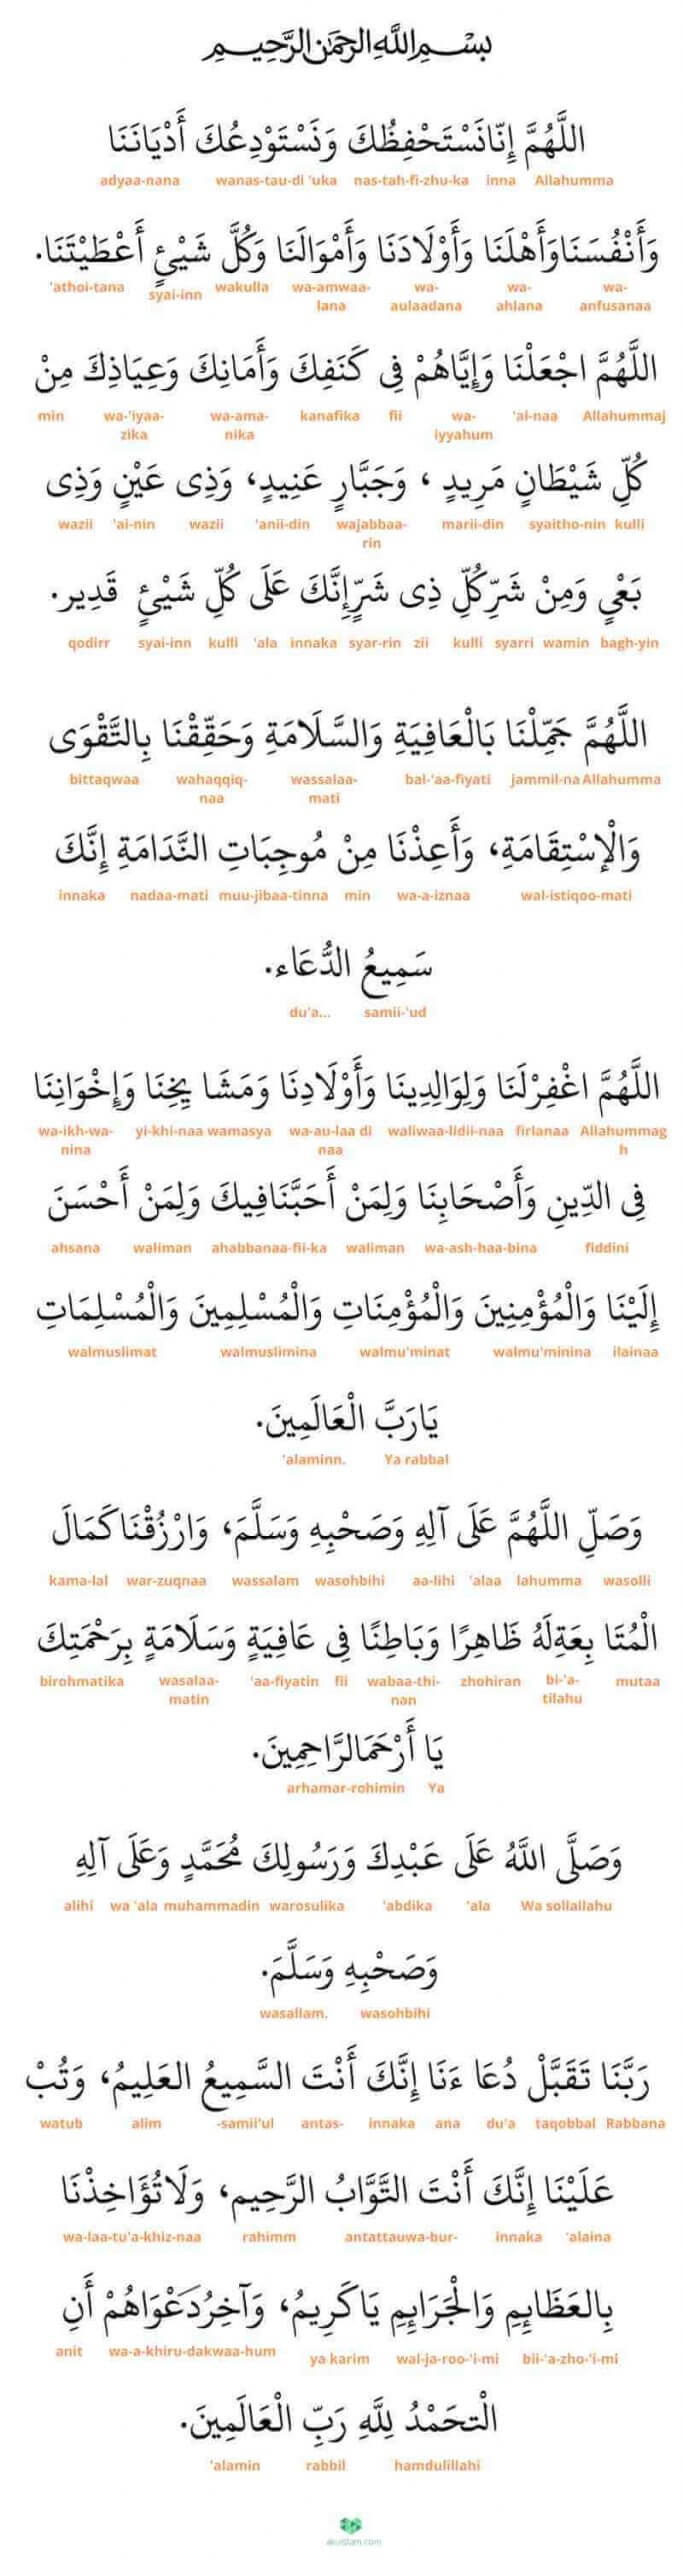 بِسْمِ اللَّهِ الرَّحْمَٰنِ الرَّحِيمِ
اللَّهُمَّ إِنَّانَسْتَحْفِظُكَ وَنَسْتَوْدِعُكَ أَدْيَانَنَا
adyaa-nana wanas-tau-di 'uka nas-tah-fi-zhu-ka inna Allahumma
وَأَنْفُسَنَاوَأَهْلَنَا وَأَوْلَادَنَا وَأَمْوَالَنَا وَكُلَّ شَيْئٍ أَعْطَيْتَنَا.
'athoi-tana syai-inn wakulla wa-amwaa-lana wa-aulaadana wa-ahlana wa-anfusanaa
اللَّهُمَّ اجْعَلْنَا وَإِيَّاهُمْ فِى كَنَفِكَ وَأَمَانِكَ وَعِيَاذِكَ مِنْ
min wa-'iyaa-zika wa-ama-nika kanafika fii wa-iyyahum 'al-naa Allahummaj
كُلِّ شَيْطَانٍ مَرِيدٍ ، وَجَبَّارٍ عَنِيدٍ، وَذِى عَيْنٍ وَذِى
wazii 'ai-nin wazii 'anii-din wajabbaa-rin marii-din syaitho-nin kulli
بَغْيٍ وَمِنْ شَرِّكُلِّ ذِى شَرٍّإِنَّكَ عَلَى كُلِّ شَيْئٍ قَدِير.
qodirr syai-inn kulli 'ala innaka syar-rin zii kulli syarri wamin bagh-yin
اللَّهُمَّ جَمِّلْنَا بَالْعَافِيَةِ وَالسَّلَامَةِ وَحَقِّقْنَا بِالتَّقْوَى
bittaqwaa wahaqqiq-naa wassalaa-mati bal-'aa-fiyati jammil-na Allahumma
وَالْإسْتِقَامَةِ، وَأَعِذْنَا مِنْ مُوجِبَاتِ النَّدَامَةِ إِنَّكَ
innaka nadaa-mati muu-jibaa-tinna min wa-a-iznaa wal-istiqoo-mati
سَمِيعُ الدُّعَاء.
du'a... samii-'ud
اللَّهُمَّ اغْفِرْلَنَا وَلِوَالِدِينَا وَأَوْلَادِنَا وَمَشَا يِخِنَا وَإِخْوَانِنَا
wa-ikh-wa-nina yi-khi-naa wamasya wa-au-laa di naa waliwaa-lidii-naa firlanaa Allahummag h
فِى الدِّينِ وَأَصْحَابِنَا وَلِمَنْ أَحَبَّنَافِيكَ وَلِمَنْ أَحْسَنَ
ahsana waliman ahabbanaa-fii-ka waliman wa-ash-haa-bina fiddini
إِلَيْنَا وَالْمُؤْمِنِينَ وَالْمُؤْمِنَاتِ وَالْمُسْلِمِينَ وَالْمُسْلِمَاتِ
walmuslimat walmuslimina walmu'minat walmu'minina ilainaa
يَارَبَّ الْعَالَمِينَ.
'alaminn. Ya rabbal
وَصَلِّ اللَّهُمَّ عَلَى آلِهِ وَصَحْبِهِ وَسَلَّمَ، وَارْزُقْنَاكَمَالَ
kama-lal war-zuqnaa wassalam wasohbihi aa-lihi 'alaa lahumma wasolli
الْمُتَا بِعَةِلَهُ ظَاهِرًا وَبَاطِنًا فِى عَافِيَةٍ وَسَلَامَةٍ بِرَحْمَتِكَ
birohmatika wasalaa-matin 'aa-fiyatin fii wabaa-thi-nan zhohiran bi-'a-tilahu mutaa
يَا أَرْحَمَالرَّاحِمِينَ.
arhamar-rohimin Ya
وَصَلَّى اللَّهُ عَلَى عَبْدِكَ وَرَسُولِكَ مُحَمَّدٍ وَعَلَى آلِهِ
alihi wa 'ala muhammadin warosulika 'abdika 'ala Wa sollallahu
وَصَحْبِهِ وَسَلَّمَ.
wasallam. wasohbihi
رَبَّنَا تَقَبَّلْ دُعَا ءَنَا إِنَّكَ أَنْتَ السَّمِيعُ العَلِيمُ، وَتُبْ
watub alim -samii'ul antas- innaka ana du'a taqobbal Rabbana
عَلَيْنَا إِنَّكَ أَنْتَ التَّوَّابُ الرَّحِيم، وَلَاتُؤَاخِذْنَا
wa-laa-tu'a-khiz-naa rahimm antattauwa-bur- innaka 'alaina
بِالعَظَائِمِ وَالْجَرَائِمِ يَاكَرِيمُ، وَآخِرُدَعْوَاهُمْ أَنِ
anit wa-a-khiru-dakwaa-hum ya karim wal-ja-roo-'i-mi bii-'a-zho-'i-mi
الْتحَمْدُ لِلَّهِ رَبِّ الْعَالَمِينَ.
'alamin rabbil hamdulillahi
akuislam.com